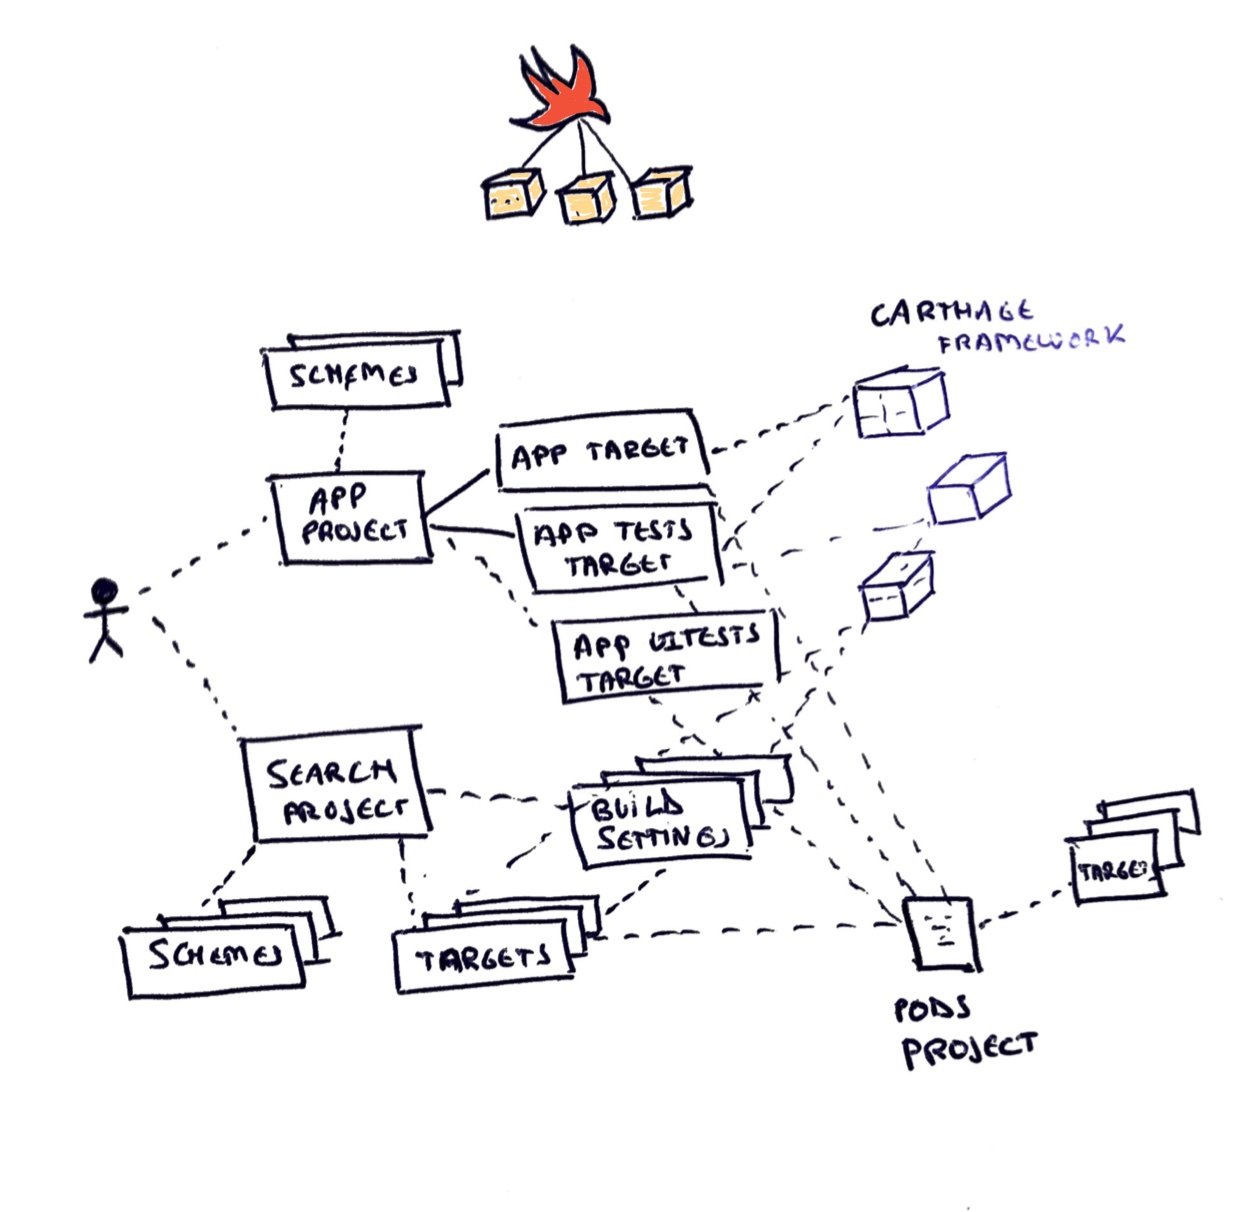 CARTHAGE
FRAMEWORK
SCHEMES
APP TARGET
APP
PROJECT
APP TESTS
TARGET
APP UITESTS
TARGET
SEARCH
PROJECT
BUILD
SETTINGS
TARGETS
SCHEMES
TARGETS
PODS
PROJECT